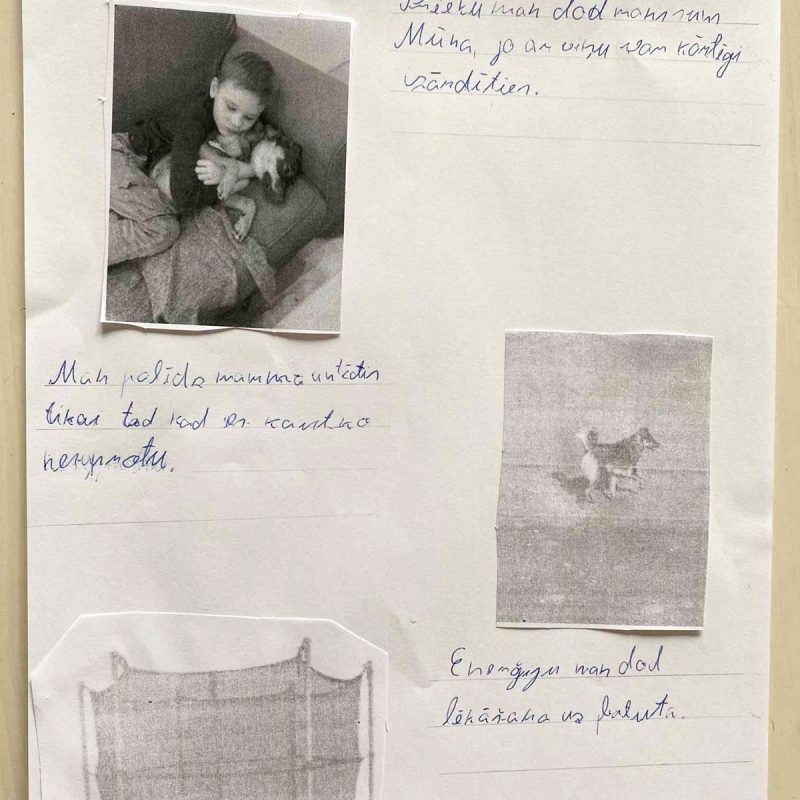 man dod mans suns
Mūna, jo ar viņu var kārtīgi
izārdīties.
Man palīdz mamma un tētis
tikai tad kad es kaut ko
nesaprotu.
Enerģiju man dod
lēkāšana uz batuta.